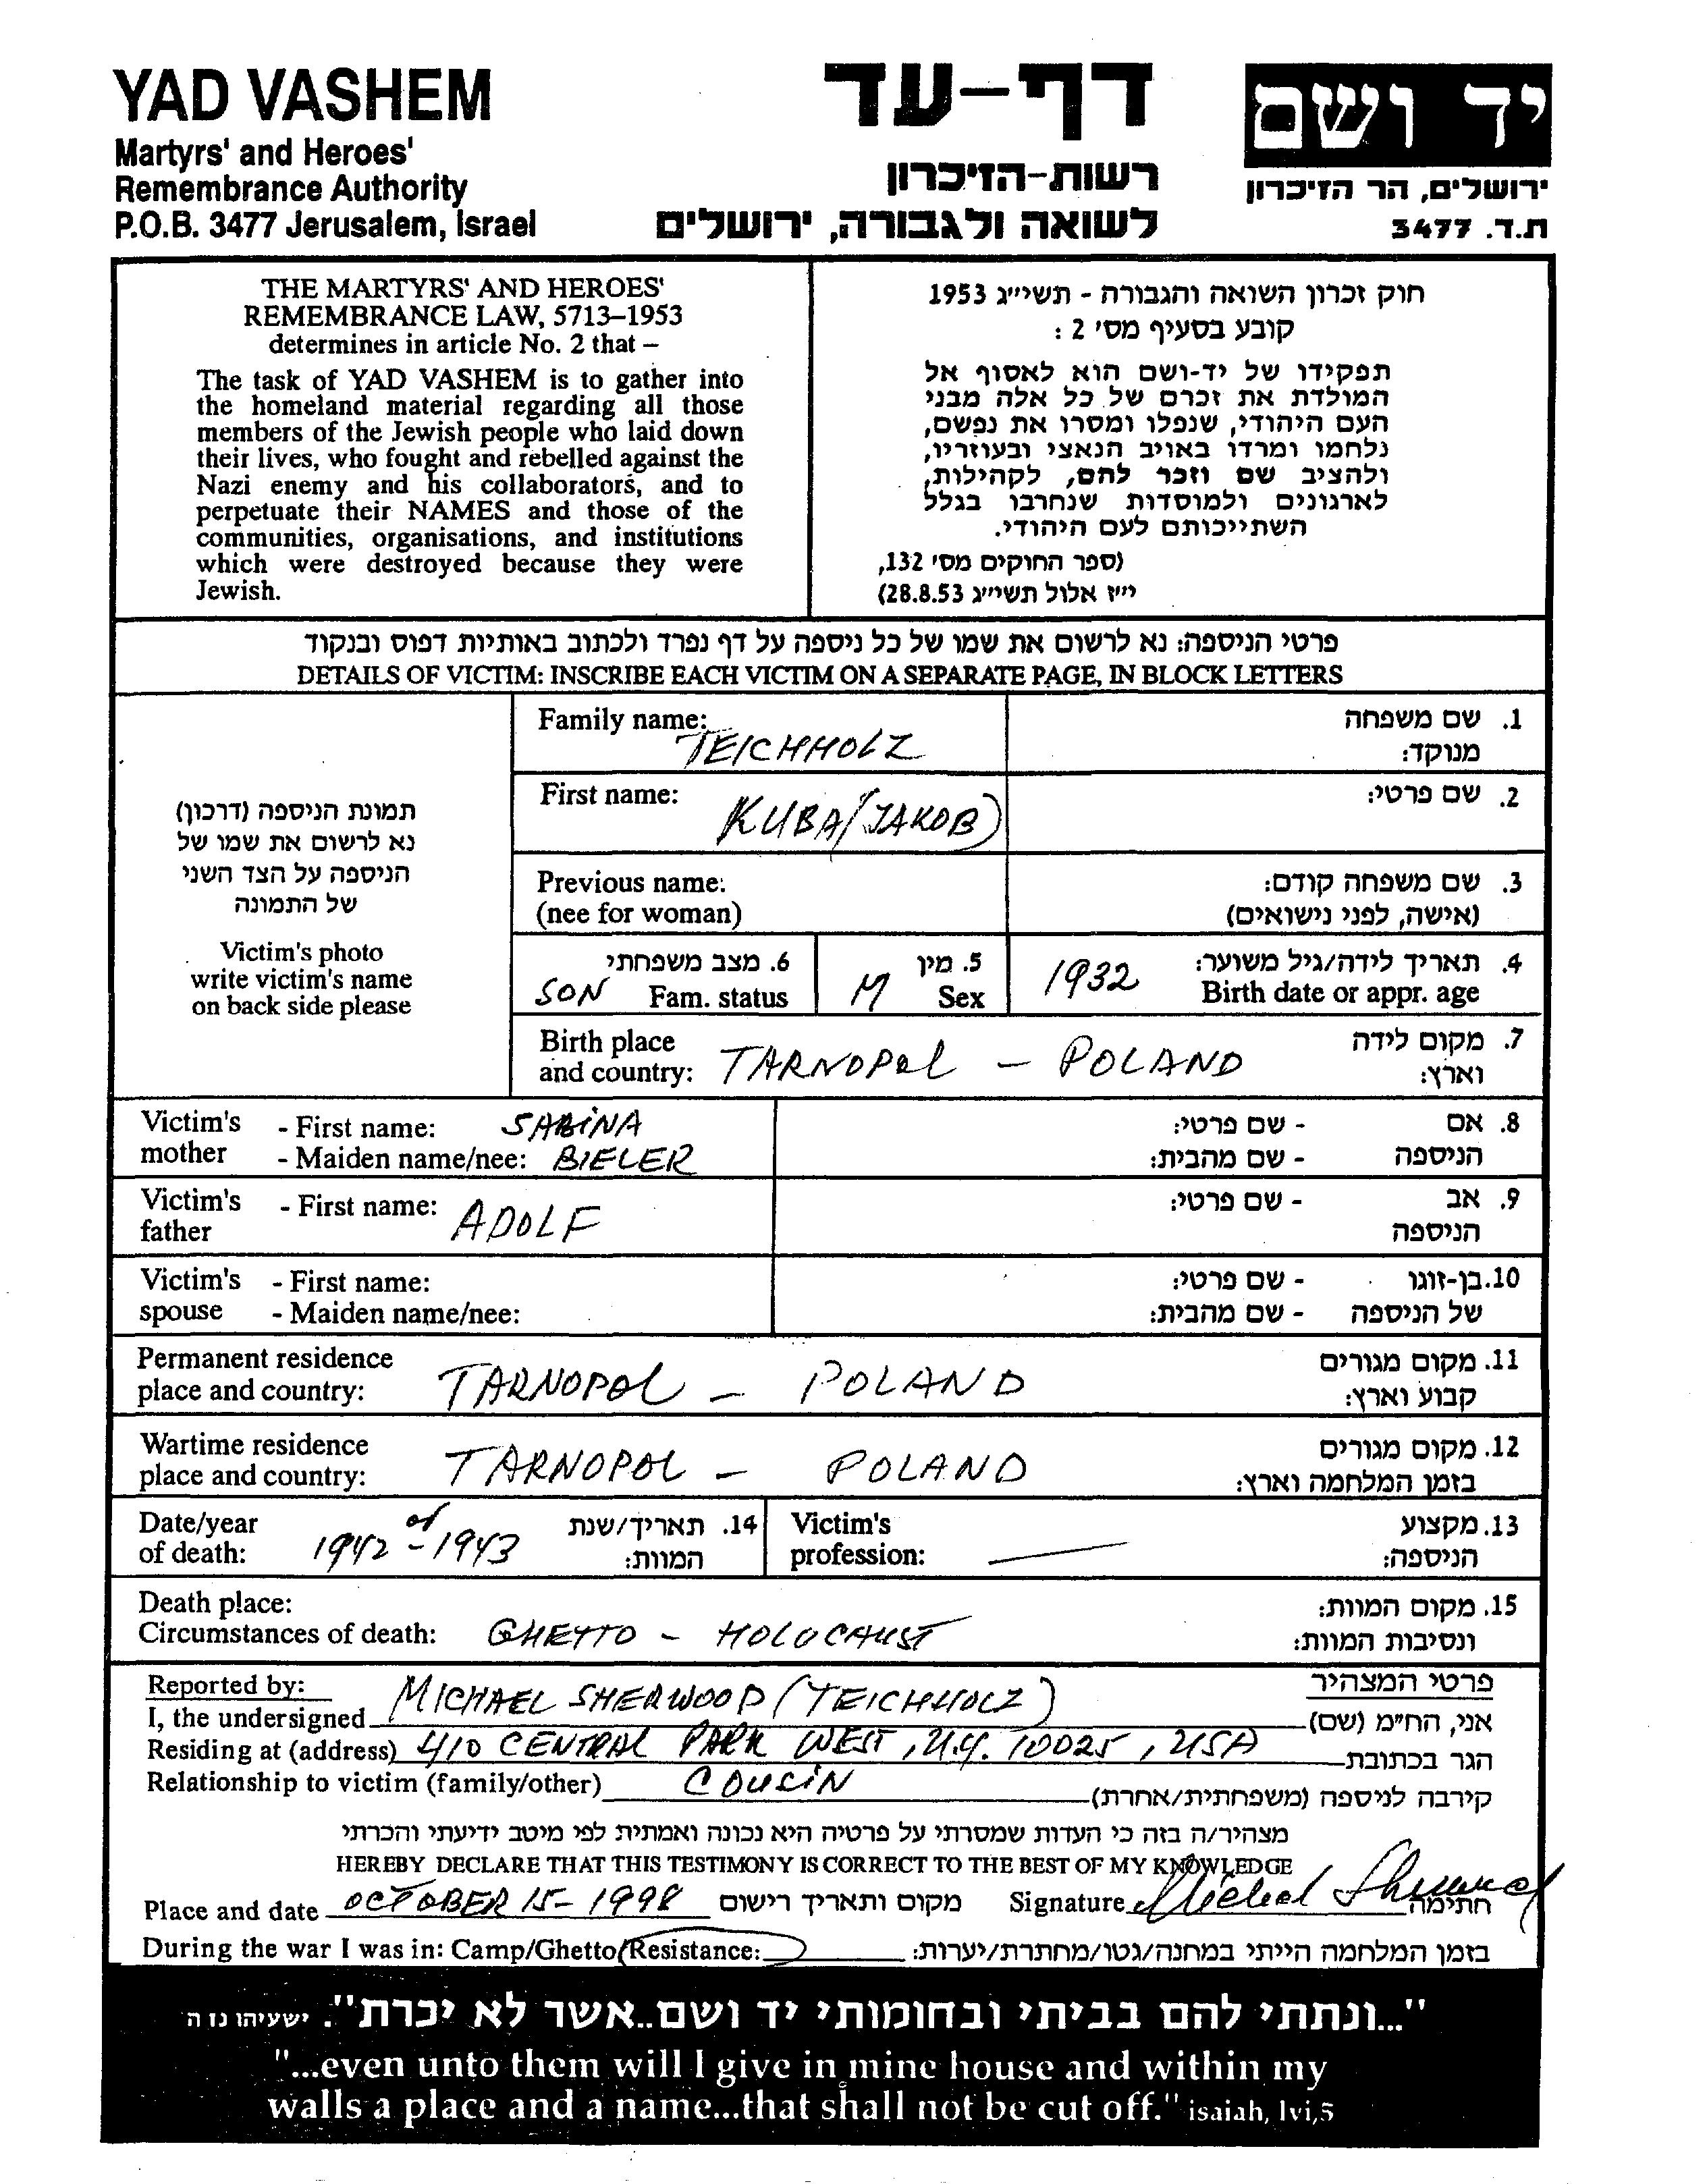 YAD VASHEM
Martyrs' and Heroes'
Remembrance Authority
P.O.B. 3477 Jerusalem, Israel
דף-עד
רשות-הזיכרון
לשואה ולגבורה, ירושלים
יד ושם
ירושלים, הר הזיכרון
ת.ד. 3477
THE MARTYRS' AND HEROES'
REMEMBRANCE LAW, 5713–1953
determines in article No. 2 that –
The task of YAD VASHEM is to gather into
the homeland material regarding all those
members of the Jewish people who laid down
their lives, who fought and rebelled against the
Nazi enemy and his collaborators, and to
perpetuate their NAMES and those of the
communities, organisations, and institutions
which were destroyed because they were
Jewish.
חוק זכרון השואה והגבורה - תשי״ג 1953
קובע בסעיף מס׳ 2 :
תפקידו של יד-ושם הוא לאסוף אל
המולדת את זכרם של כל אלה מבני
העם היהודי, שנפלו ומסרו את נפשם,
נלחמו ומרדו באויב הנאצי ובעוזריו,
ולהציב שם וזכר להם, לקהילות,
לארגונים ולמוסדות שנחרבו בגלל
השתייכותם לעם היהודי.
(ספר החוקים מס׳ 132,
י״ז אלול תשי״ג 28.8.53)
פרטי הניספה: נא לרשום את שמו של כל ניספה על דף נפרד ולכתוב באותיות דפוס ובנקוד
DETAILS OF VICTIM: INSCRIBE EACH VICTIM ON A SEPARATE PAGE, IN BLOCK LETTERS
תמונת הניספה (דרכון)
נא לרשום את שמו של
הניספה על הצד השני
של התמונה
Victim's photo
write victim's name
on back side please
Family name: TEICHHOLZ 1. שם משפחה
מנוקד:
First name: KUBA (JAKOB) 2. שם פרטי:
Previous name: 3. שם משפחה קודם:
(nee for woman) (אישה, לפני נישואים)
6. מצב משפחתי 5. מין 4. תאריך לידה/גיל משוער:
SON Fam. status M Sex 1932 Birth date or appr. age
Birth place 7. מקום לידה
and country: TARNOPOL - POLAND וארץ:
Victim's - First name: SABINA - שם פרטי: 8. אם
mother - Maiden name/nee: BIELER - שם מהבית: הניספה
Victim's - First name: ADOLF - שם פרטי: 9. אב
father הניספה
Victim's - First name: - שם פרטי: 10. בן-זוגו
spouse - Maiden name/nee: - שם מהבית: של הניספה
Permanent residence 11. מקום מגורים
place and country: TARNOPOL - POLAND קבוע וארץ:
Wartime residence 12. מקום מגורים
place and country: TARNOPOL - POLAND בזמן המלחמה וארץ:
Date/year 14. תאריך/שנת Victim's 13. מקצוע
of death: 1942 - or 1943 המוות: profession: — הניספה:
Death place: 15. מקום המוות:
Circumstances of death: GHETTO - HOLOCAUST ונסיבות המוות:
Reported by: פרטי המצהיר
I, the undersigned MICHAEL SHERWOOD (TEICHHOLZ) אני, החי״מ (שם)
Residing at (address) 410 CENTRAL PARK WEST, N.Y. 10025, USA הגר בכתובת
Relationship to victim (family/other) COUSIN קירבה לניספה (משפחתית/אחרת)
מצהיר/ה בזה כי העדות שמסרתי על פרטיה היא נכונה ואמתית לפי מיטב ידיעתי והכרתי
HEREBY DECLARE THAT THIS TESTIMONY IS CORRECT TO THE BEST OF MY KNOWLEDGE
Place and date OCTOBER 15 - 1998 מקום ותאריך רישום Signature Michael Sherwood חתימה
During the war I was in: Camp/Ghetto/Resistance: בזמן המלחמה הייתי במחנה/גטו/מחתרת/יערות:
"...ונתתי להם בביתי ובחומותי יד ושם..אשר לא יכרת". ישעיהו נז ה
"...even unto them will I give in mine house and within my
walls a place and a name...that shall not be cut off." isaiah, lvi,5